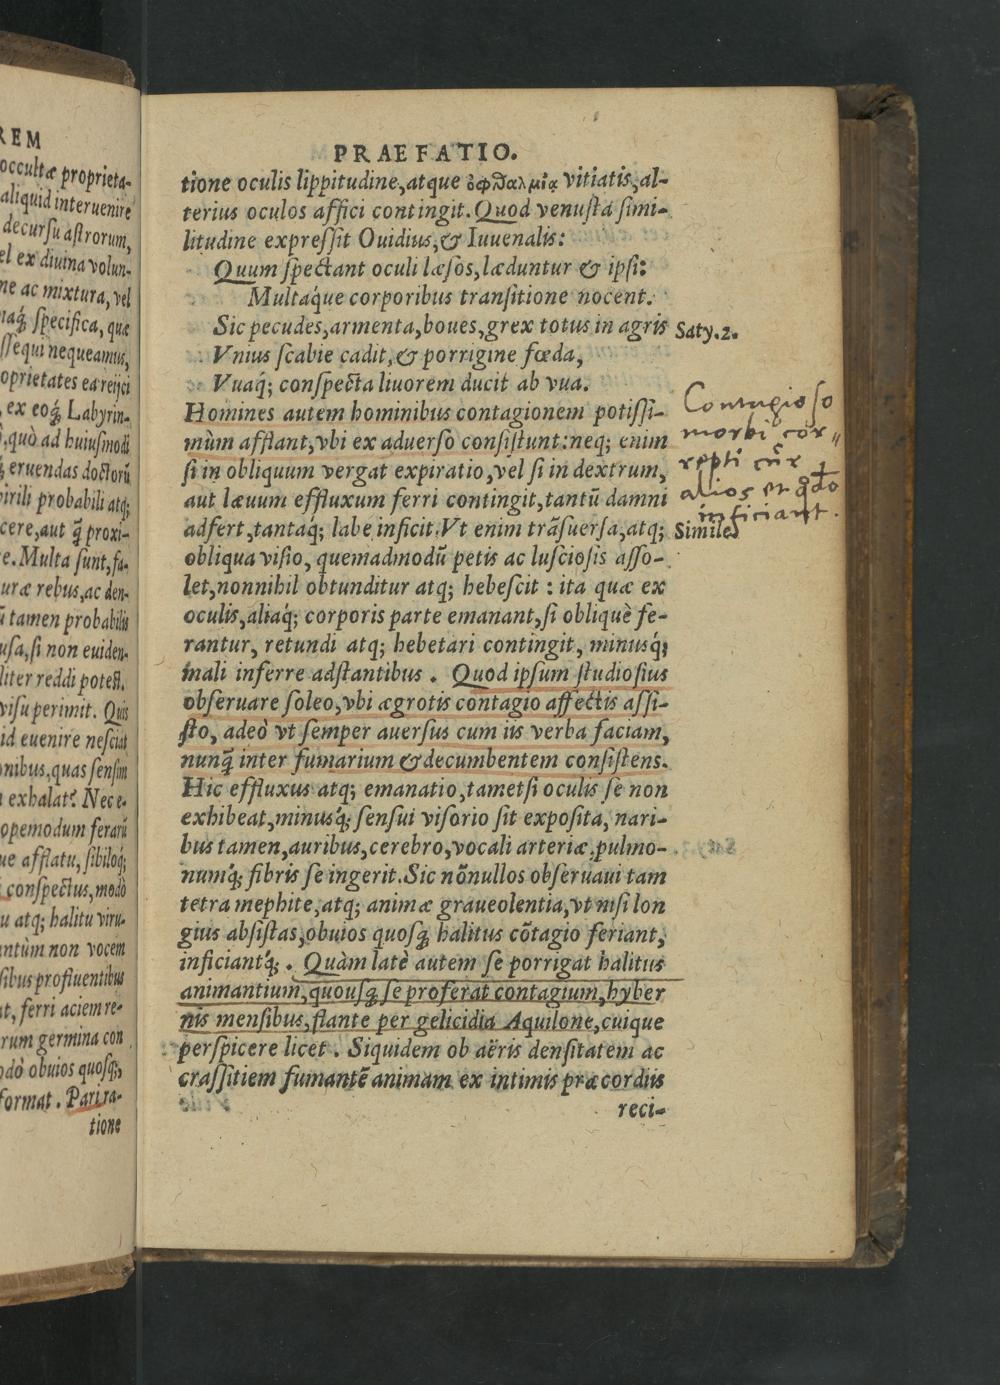 REM
occultæ proprieta-
aliquid interuenire
decursu astrorum,
el ex diuina volun-
ne ac mixtura, vel
specifica, quæ
ssequi nequeamus,
oprietates ea reijci
ex eoq́; Labyrin-
quò ad huiusmodi
eruendas doctorũ
virili probabili atq;
cere, aut q̃ proxi-
e. Multa sunt, fa-
uræ rebus, ac den-
ũ tamen probabilis
usa, si non euiden-
liter reddi potest.
visu perimit. Quis
id euenire nesciat
nibus, quas sensim
exhalat? Nec e-
opemodum ferarũ
ue afflatu, sibiloq́;
conspectus, modò
u atq; halitu viru-
ntùm non vocem
sibus profluentibus
t, ferri aciem re-
rum germina con
odò obuios quosq;,
format. Pari ra-
tione
PRAEFATIO.
tione oculis lippitudine, atque ὀφθαλμίᾳ vitiatis, al-
terius oculos affici contingit. Quod venusta simi-
litudine expressit Ouidius, & Iuuenalis:
Quum spectant oculi læsos, læduntur & ipsi:
Multáque corporibus transitione nocent.
Sic pecudes, armenta, boues, grex totus in agris
Saty.2.
Vnius scabie cadit, & porrigine fœda,
Vuaq́; conspecta liuorem ducit ab vua.
Homines autem hominibus contagionem potissi-
mùm afflant, vbi ex aduerso consistunt: neq; enim
si in obliquum vergat expiratio, vel si in dextrum,
aut læuum effluxum ferri contingit, tantũ damni
adfert, tantaq; labe inficit. Vt enim trãsuersa, atq;
obliqua visio, quemadmodũ petis ac lusciosis asso-
let, nonnihil obtunditur atq; hebescit : ita quæ ex
oculis, aliaq́; corporis parte emanant, si obliquè fe-
rantur, retundi atq; hebetari contingit, minusq́;
mali inferre adstantibus. Quod ipsum studiosius
obseruare soleo, vbi ægrotis contagio affectis assi-
sto, adeò vt semper auersus cum iis verba faciam,
nunq̃ inter fumarium & decumbentem consistens.
Hic effluxus atq; emanatio, tametsi oculis se non
exhibeat, minusq́; sensui visorio sit exposita, nari-
bus tamen, auribus, cerebro, vocali arteriæ, pulmo-
numq́; fibris se ingerit. Sic nõnullos obseruaui tam
tetra mephite, atq; animæ graueolentia, vt nisi lon
gius absistas, obuios quosq; halitus cõtagio feriant,
inficiantq́;. Quàm latè autem se porrigat halitus
animantium, quousq; se proferat contagium, hyber
nis mensibus, flante per gelicidia Aquilone, cuique
perspicere licet. Siquidem ob aëris densitatem ac
crassitiem fumantẽ animam ex intimis præcordiis
reci-
Contagioso
morbi cor„
repti cur
alios et
inficiant.
Similes